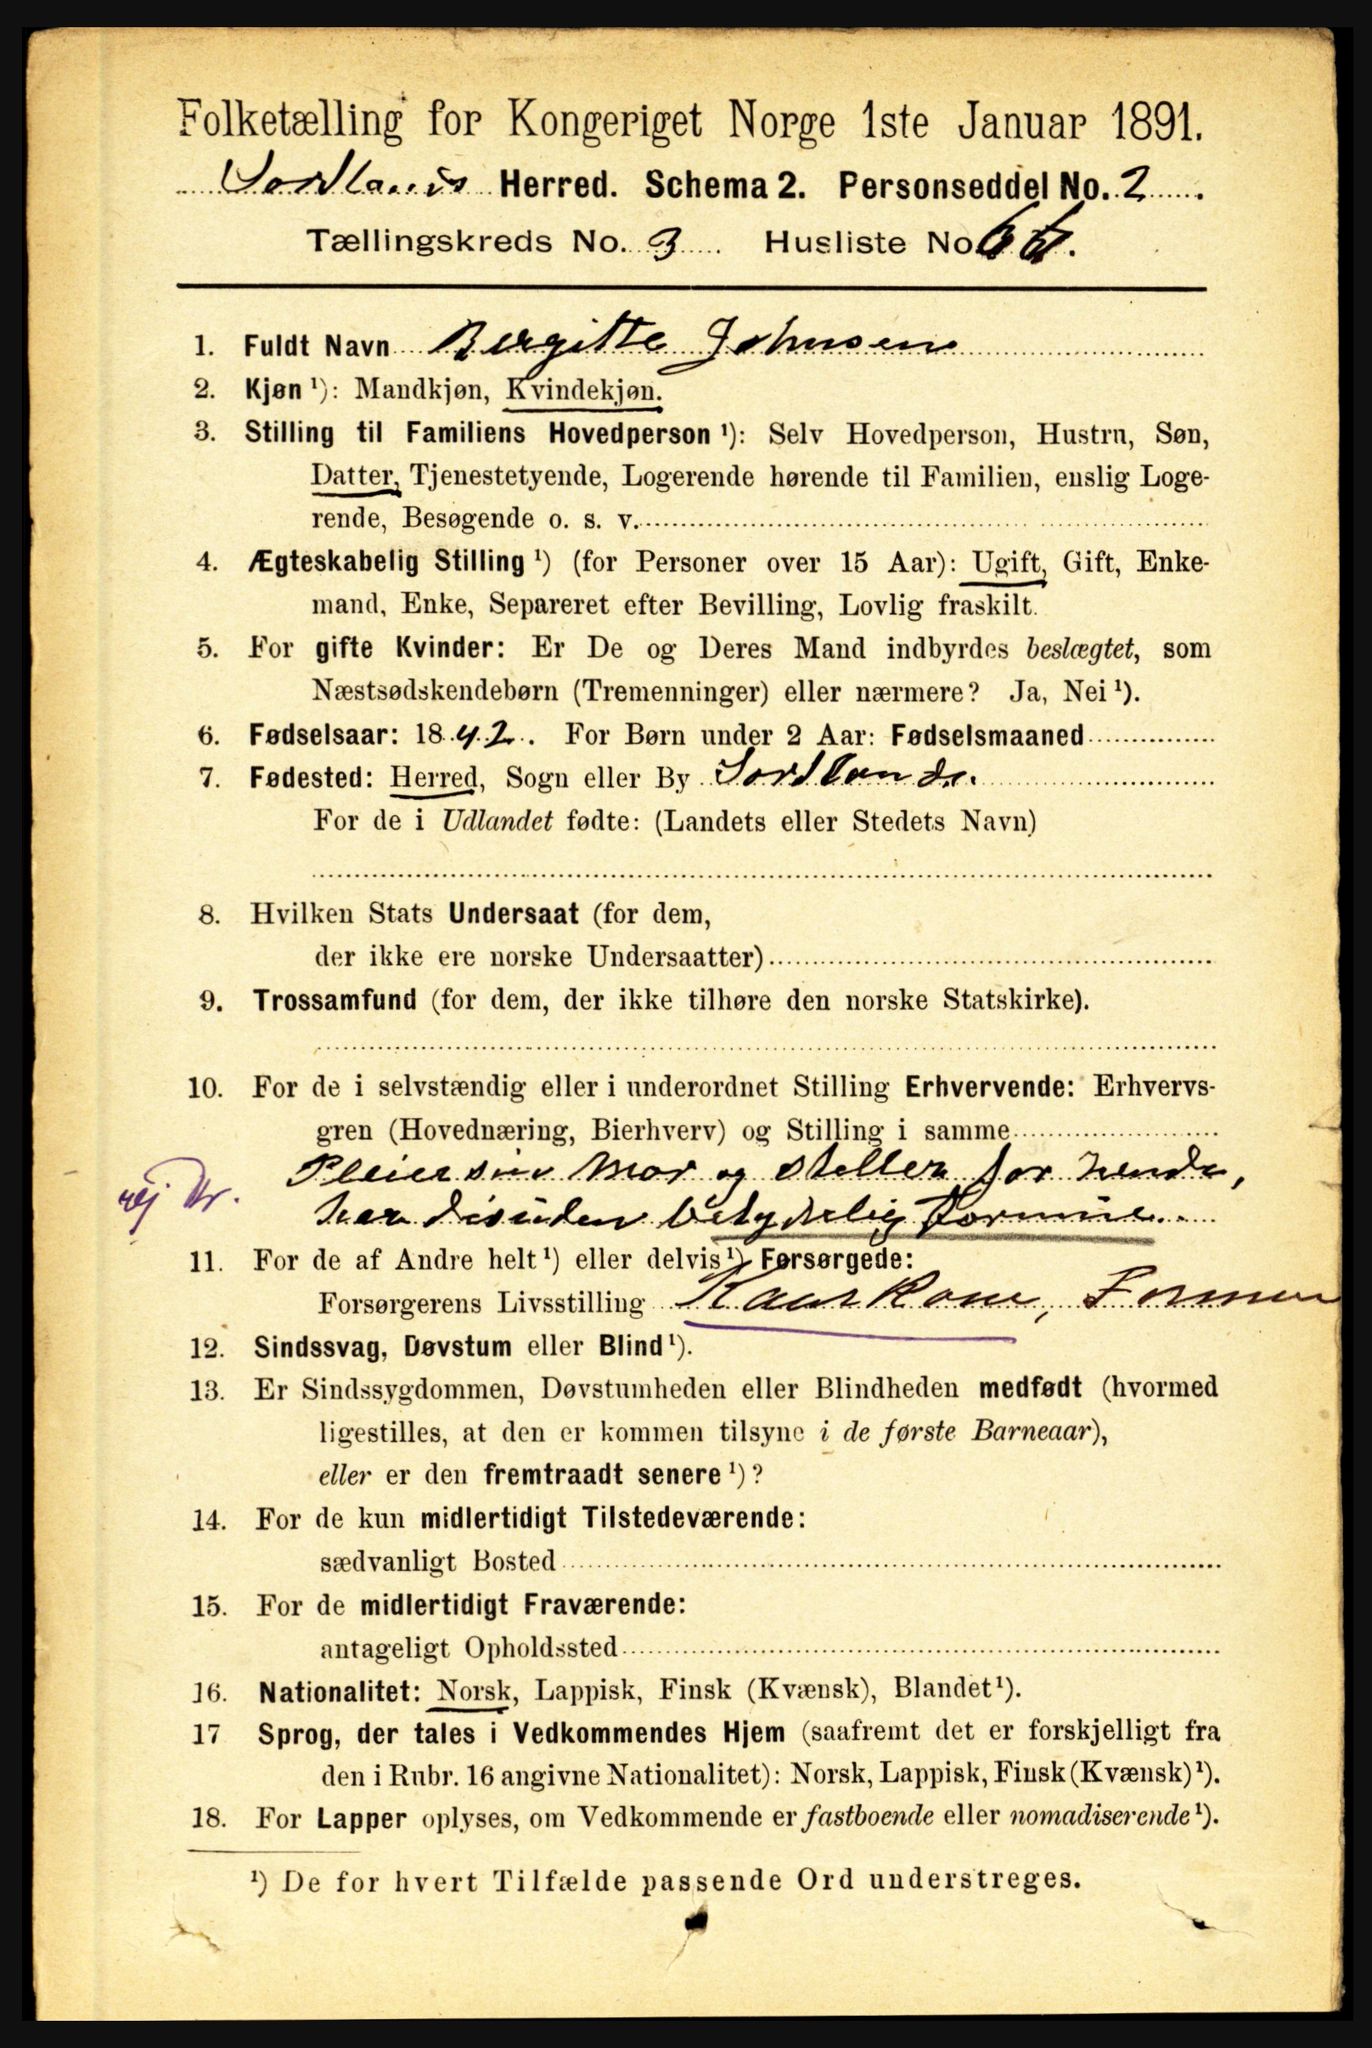 Folketælling for Kongeriget Norge 1ste Januar 1891.
Sortlands Herred. Schema 2. Personseddel No. 2.
Tællingskreds No. 3 Husliste No. 66.
1. Fuldt Navn Bergitte Johnsen
2. Kjøn ¹): Mandkjøn, Kvindekjøn.
3. Stilling til Familiens Hovedperson ¹): Selv Hovedperson, Hustru, Søn,
Datter, Tjenestetyende, Logerende hørende til Familien, enslig Loge-
rende, Besøgende o. s. v.
4. Ægteskabelig Stilling ¹) (for Personer over 15 Aar): Ugift, Gift, Enke-
mand, Enke, Separeret efter Bevilling, Lovlig fraskilt.
5. For gifte Kvinder: Er De og Deres Mand indbyrdes beslægtet, som
Næstsødskendebørn (Tremenninger) eller nærmere? Ja, Nei ¹).
6. Fødselsaar: 1842. For Børn under 2 Aar: Fødselsmaaned
7. Fødested: Herred, Sogn eller By Sortlands.
For de i Udlandet fødte: (Landets eller Stedets Navn)
8. Hvilken Stats Undersaat (for dem,
der ikke ere norske Undersaatter)
9. Trossamfund (for dem, der ikke tilhøre den norske Statskirke).
10. For de i selvstændig eller i underordnet Stilling Erhvervende: Erhvervs-
gren (Hovednæring, Bierhverv) og Stilling i samme
Pleier sin Mor og steller for hende,
har desuden betydelig Formue.
11. For de af Andre helt ¹) eller delvis ¹) Forsørgede:
Forsørgerens Livsstilling Kaarkone, Formue
12. Sindssvag, Døvstum eller Blind ¹).
13. Er Sindssygdommen, Døvstumheden eller Blindheden medfødt (hvormed
ligestilles, at den er kommen tilsyne i de første Barneaar),
eller er den fremtraadt senere ¹)?
14. For de kun midlertidigt Tilstedeværende:
sædvanligt Bosted
15. For de midlertidigt Fraværende:
antageligt Opholdssted
16. Nationalitet: Norsk, Lappisk, Finsk (Kvænsk), Blandet ¹).
17 Sprog, der tales i Vedkommendes Hjem (saafremt det er forskjelligt fra
den i Rubr. 16 angivne Nationalitet): Norsk, Lappisk, Finsk (Kvænsk) ¹).
18. For Lapper oplyses, om Vedkommende er fastboende eller nomadiserende ¹).
¹) De for hvert Tilfælde passende Ord understreges.